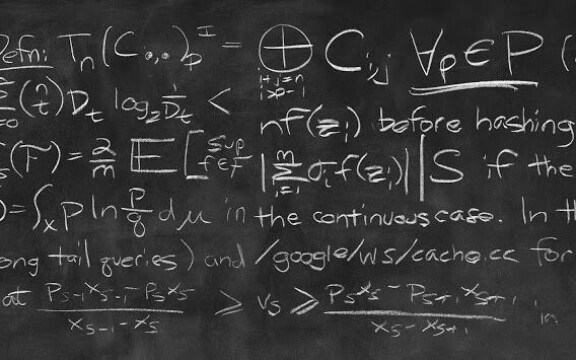 Defn: Tn(C.,.)p^I = ⊕ i+j=n i>p-1 Ci,j ∀p∈P (
Σ t=0 (n/t) Dt log2 1/Dt < nf(zi) before hashing
s(F) = 2/m E[sup f∈F |Σ i=1 m σi f(zi)||S if the
)= ∫x p ln p/q dμ in the continuous case. In th
ong tail queries) and /google/ws/cache.cc for
at Ps-1 xs-1 - Ps xs / xs-1 - xs ≥ vs ≥ Ps xs - Ps+1 xs+1 / xs - xs+1 in